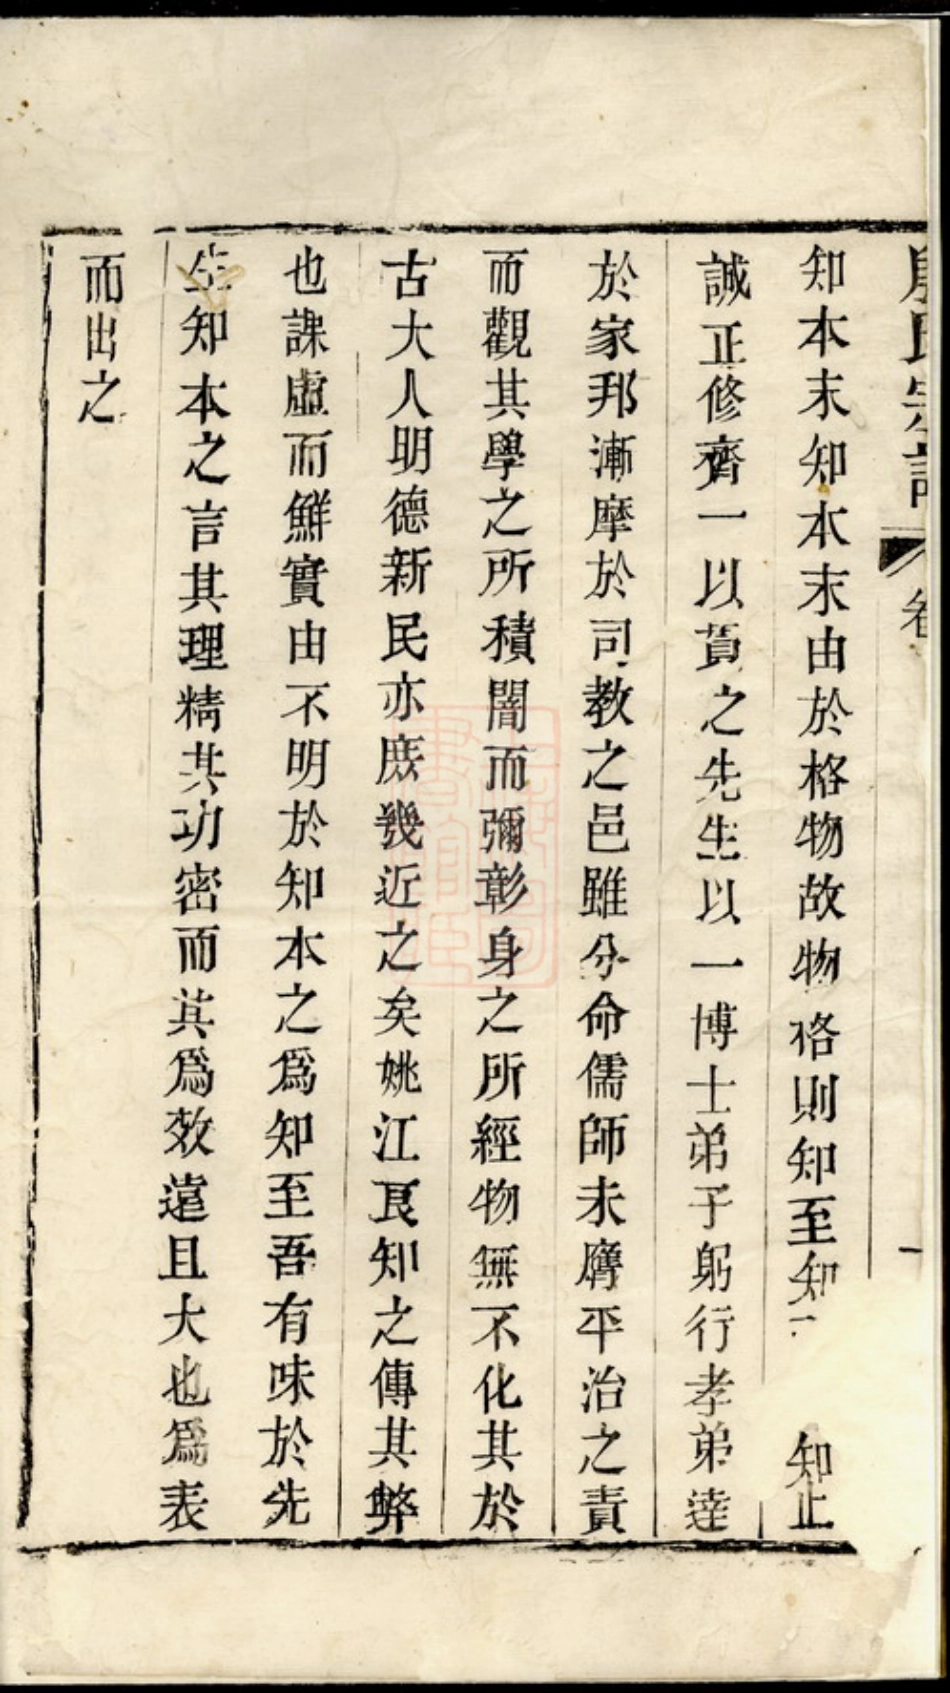 氏宗譜 卷 一
知本末知本末由於格物故物格則知至知 知止
誠正修齊一以貫之先生以一博士弟子躬行孝弟達
於家邦漸摩於司教之邑雖分命儒師未膺平治之責
而觀其學之所積闇而彌彰身之所經物無不化其於
古大人明德新民亦庶幾近之矣姚江良知之傳其弊
也課虛而鮮實由不明於知本之爲知至吾有味於先
生知本之言其理精其功密而其爲效遠且大也爲表
而出之